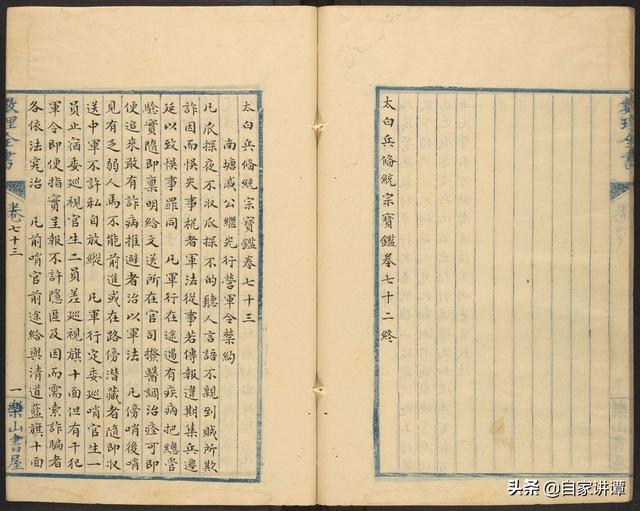 太白兵備統宗寶鑑卷七十二終
太白兵備統宗寶鑑卷七十三
南塘戚公繼光行營軍令禁約
凡瓜探夜不收瓜探不的聽人言語不親到賊所欺
詐因而悞失事机者軍法從事若傳報違期集兵遷
延以致悞事罪同 凡軍行在途遇有疾病把總營
驗實隨即稟明給文送所在官司撥醫調治痊可即
便追來敢有詐病推避者治以軍法 凡傍哨後哨
見有乏弱人馬不能前進或在路傍潛藏者隨即収
送中軍不許私自放縱 凡軍行定委巡哨官生一
員止宿委巡視官生二員差巡視旗十面但有干犯
軍令即便指實呈報不許隱匿及因而需索詐騙者
各依法究治 凡前哨官前途給與清道藍旗十面
數理全書 卷七十三 一 樂山書屋
头条 @自家讲谭